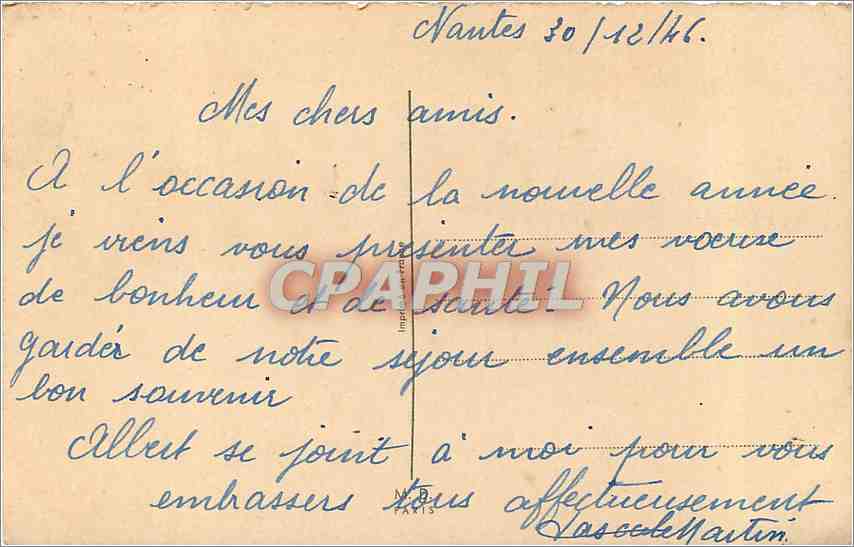 Nantes 30/12/46.
Mes chers amis.
A l'occasion de la nouvelle année
je viens vous présenter mes voeux
de bonheur et de santé. Nous avous
garder de notre séjour ensemble un
bon souvenir
Albert se joint à moi pour vous
embrassers tous affectueusement
Martin.
Imprimé en France
CPAPHIL
M. D.
PARIS